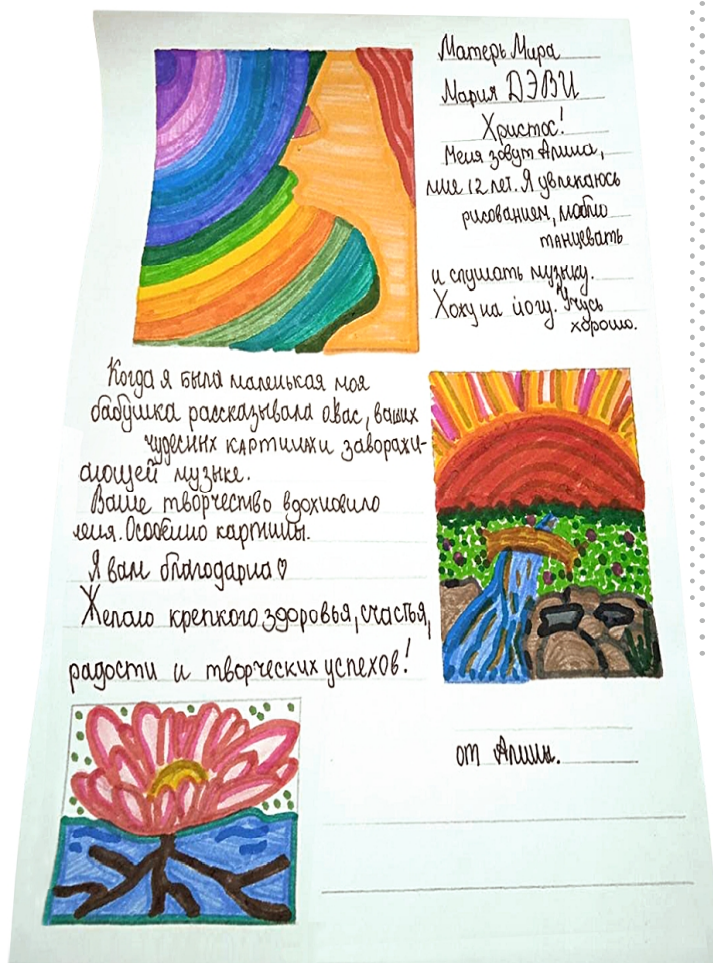 Матерь Мира
Мария ДЭВИ
Христос!
Меня зовут Алина,
мне 12 лет. Я увлекаюсь
рисованием, люблю
танцевать
и слушать музыку.
Хожу на йогу. Учусь
хорошо.
Когда я была маленькая моя
бабушка рассказывала о вас, ваших
чудесных картинах и заворажи-
ающей музыке.
Ваше творчество вдохновило
меня. Особенно картины.
Я вам благодарна♡
Желаю крепкого здоровья, счастья,
радости и творческих успехов!
от Алины.